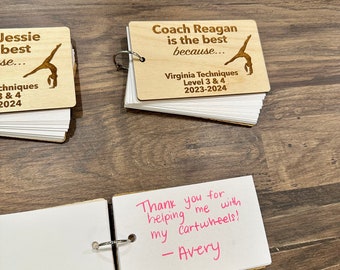 Jessie
best
because...
Techniques
3 & 4
-2024
Coach Reagan
is the best
because...
Virginia Techniques
Level 3 & 4
2023-2024
Thank you for
helping me with
my cartwheels!
- Avery